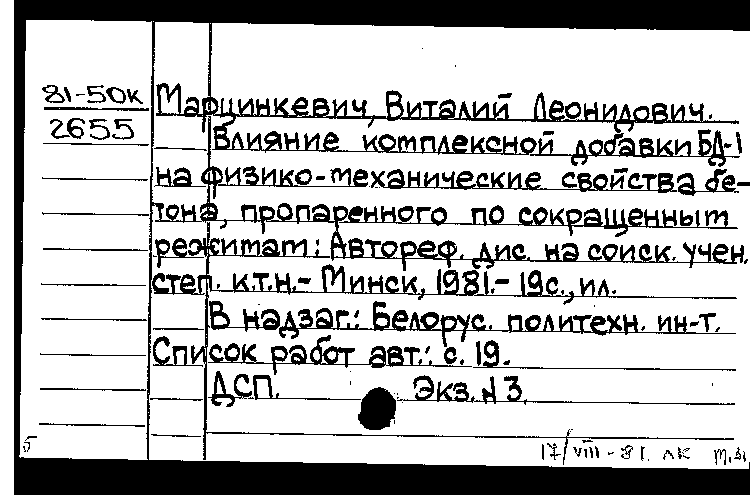 81-50к
2655
Марцинкевич, Виталий Леонидович.
Влияние комплексной добавки БД-1
на физико-механические свойства бе-
тона, пропаренного по сокращенным
режимам: Автореф. дис. на соиск. учен.
степ. к.т.н.- Минск, 1981.- 19с., ил.
В надзаг.: Белорус. политехн. ин-т.
Список работ авт.: с. 19.
ДСП. Экз. N 3.
5 17/VIII - 81. ЛК